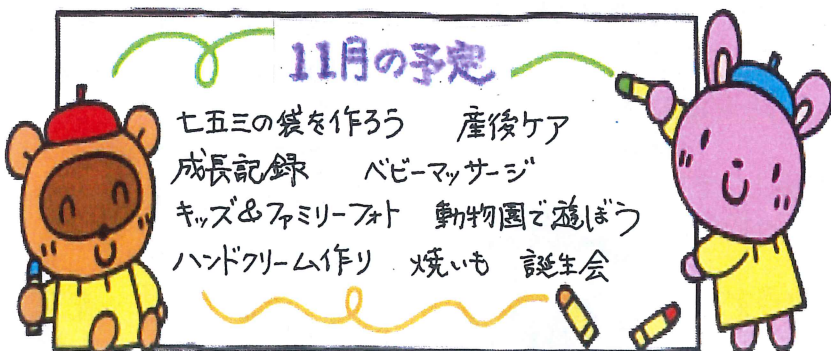 11月の予定
七五三の袋を作ろう 産後ケア
成長記録 ベビーマッサージ
キッズ&ファミリーフォト 動物園で遊ぼう
ハンドクリーム作り 焼いも 誕生会